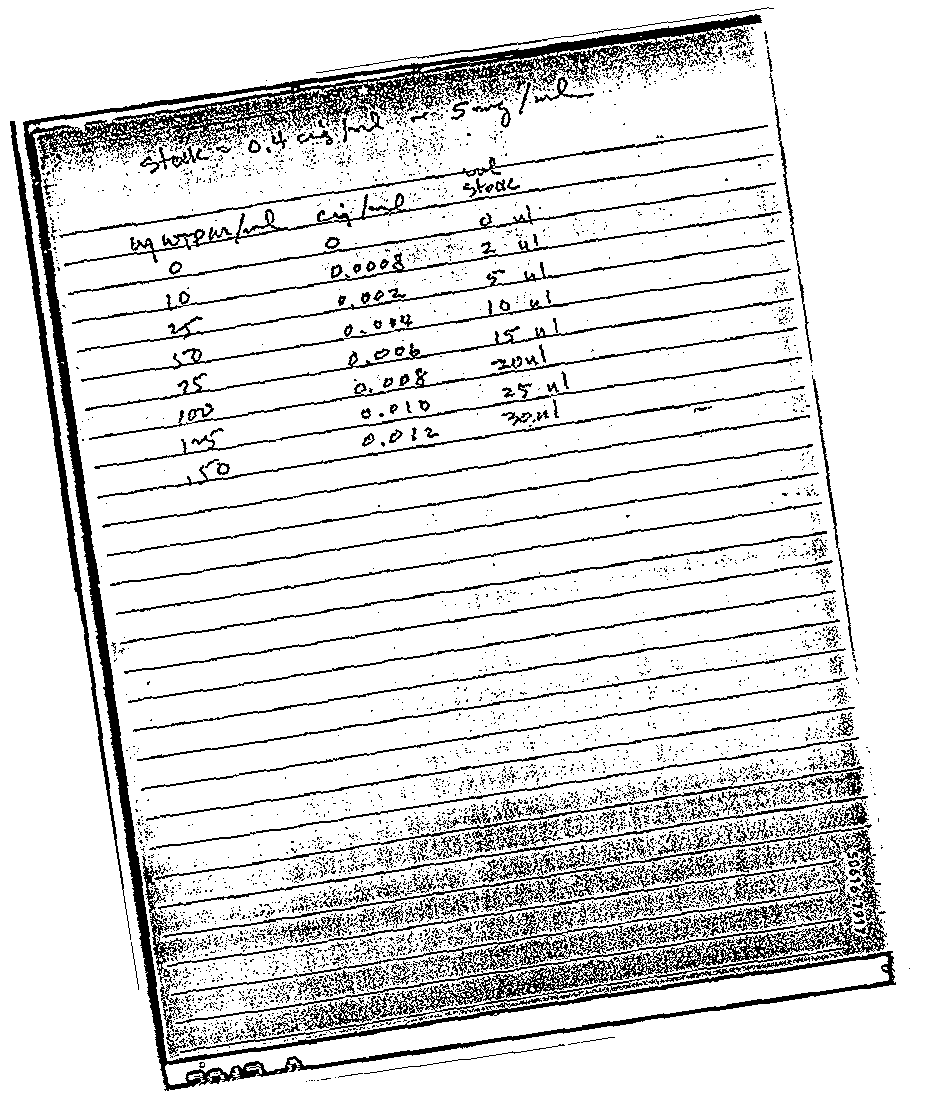 Stock = 0.4 cig/ml ~ 5mg/ml
vol
ug WTPM/ml cig/ml stock
0 0 0 ul
10 0.0008 2 ul
25 0.002 5 ul
50 0.004 10 ul
75 0.006 15 ul
100 0.008 20ul
125 0.010 25 ul
150 0.012 30ul